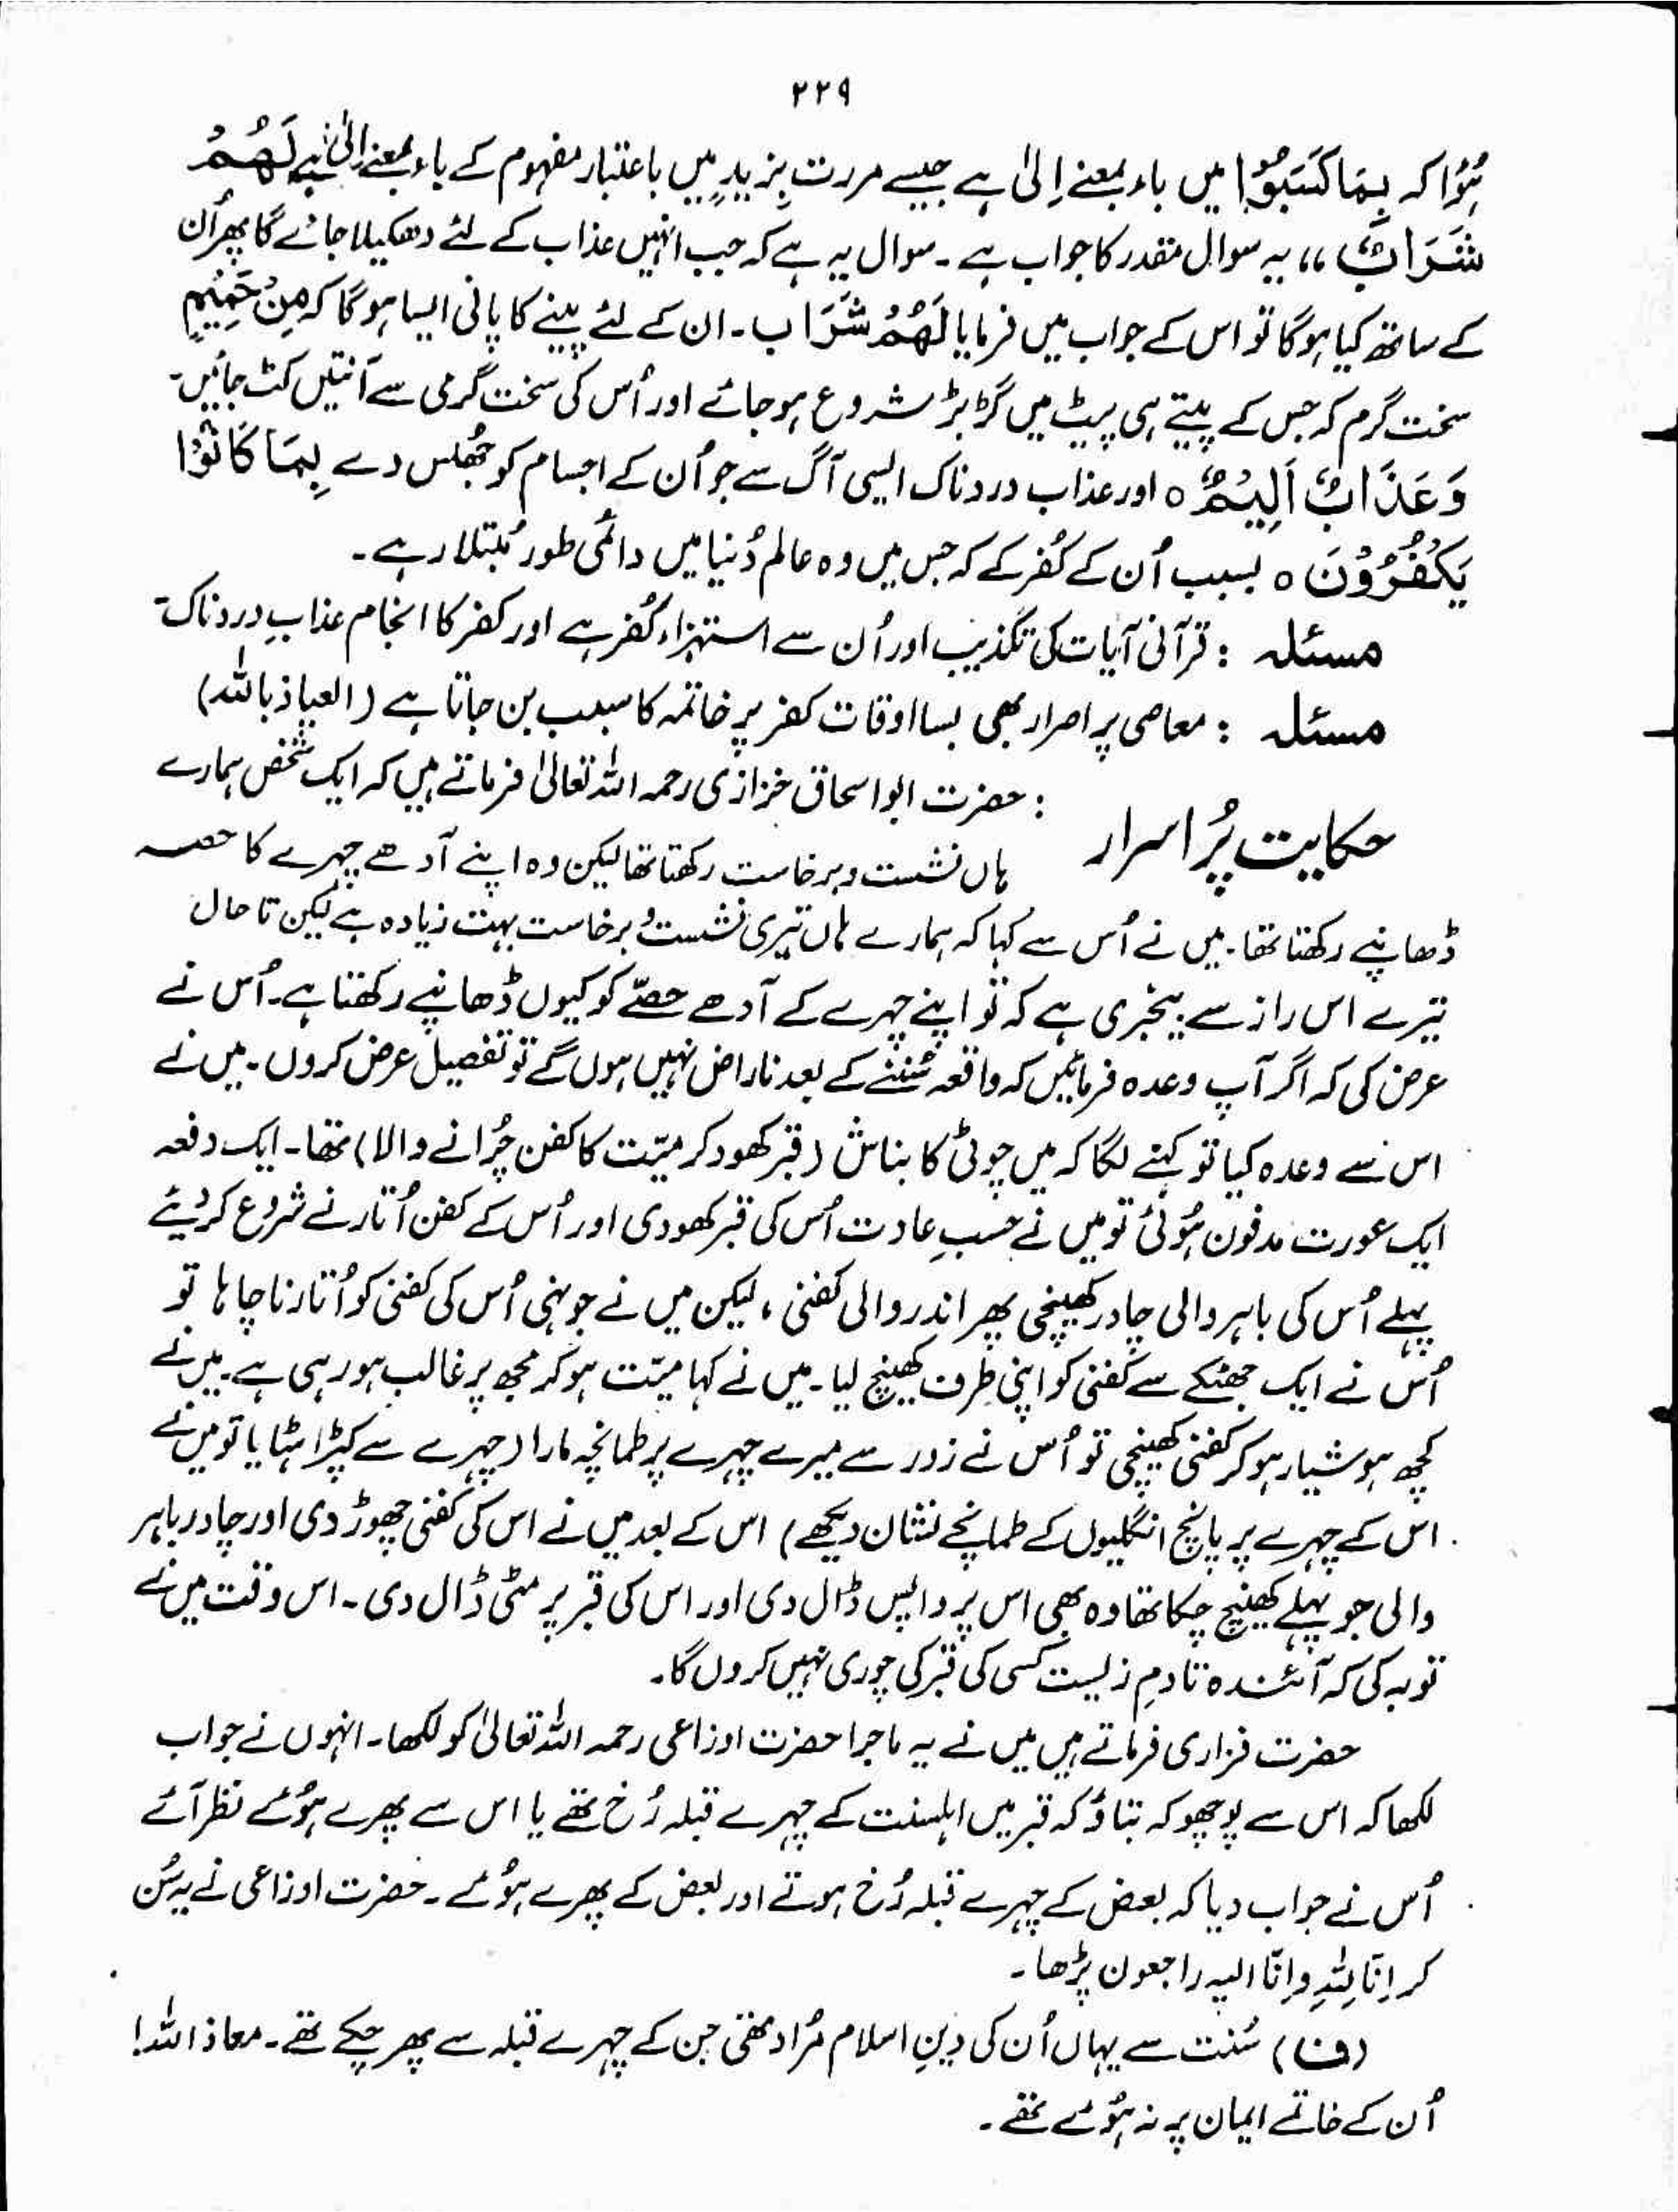 ۲۲۹
ہُوا کہ بِمَا كَسَبُوْا میں باء بمعنے اِلیٰ ہے جیسے مررت بزیدٍ میں باعتبار مفہوم کے باء بمعنے الیٰ ہے لَهُمْ
شَرَابٌ ،، یہ سوال مقدر کا جواب ہے ۔ سوال یہ ہے کہ جب انہیں عذاب کے لئے دھکیلا جائے گا پھر اُن
کے ساتھ کیا ہو گا تو اس کے جواب میں فرمایا لَهُمْ شَرَاب ۔ ان کے لئے پینے کا پانی ایسا ہو گا کہ مِنْ حَمِيْمٍ
سخت گرم کہ جس کے پیتے ہی پیٹ میں گڑبڑ شروع ہو جائے اور اُس کی سخت گرمی سے آنتیں کٹ جائیں۔
وَعَذَابٌ اَلِيْمٌ ٥ اور عذاب دردناک ایسی آگ سے جو اُن کے اجسام کو جھُلس دے بِمَا كَانُوْا
يَكْفُرُوْنَ ٥ بسبب اُن کے کُفر کے کہ جس میں وہ عالم دُنیا میں دائمی طور مُبتلا رہے ۔
مسئلہ : قرآنی آیات کی تکذیب اور اُن سے استہزاء کُفر ہے اور کفر کا انجام عذابِ دردناک۔
مسئلہ : معاصی پر اصرار بھی بسا اوقات کفر پر خاتمہ کا سبب بن جاتا ہے (العیاذ باللہ)
حکایت پُر اسرار : حضرت ابو اسحاق خزازی رحمہ اللہ تعالیٰ فرماتے ہیں کہ ایک شخص ہمارے
ہاں نشست و برخاست رکھتا تھا لیکن وہ اپنے آدھے چہرے کا حصہ
ڈھانپے رکھتا تھا۔ میں نے اُس سے کہا کہ ہمارے ہاں تیری نشست و برخاست بہت زیادہ ہے لیکن تا حال
تیرے اس راز سے بیخبری ہے کہ تُو اپنے چہرے کے آدھے حصّے کو کیوں ڈھانپے رکھتا ہے۔ اُس نے
عرض کی کہ اگر آپ وعدہ فرمائیں کہ واقعہ سُننے کے بعد ناراض نہیں ہوں گے تو تفصیل عرض کروں ۔ میں نے
اس سے وعدہ کیا تو کہنے لگا کہ میں چوٹی کا بناش (قبر کھود کر میّت کا کفن چُرانے والا) تھا۔ ایک دفعہ
ایک عورت مدفون ہُوئی تو میں نے حسبِ عادت اُس کی قبر کھودی اور اُس کے کفن اُتارنے شروع کر دیئے
پہلے اُس کی باہر والی چادر کھینچی پھر اندر والی کفنی ، لیکن میں نے جونہی اُس کی کفنی کو اُتارنا چاہا تو
اُس نے ایک جھٹکے سے کفنی کو اپنی طرف کھینچ لیا۔ میں نے کہا میّت ہو کر مجھ پر غالب ہو رہی ہے۔ میں نے
کچھ ہوشیار ہو کر کفنی کھینچی تو اُس نے زور سے میرے چہرے پر طمانچہ مارا (چہرے سے کپڑا ہٹایا تو میں نے
اس کے چہرے پر پانچ انگلیوں کے طمانچے نشان دیکھے) اس کے بعد میں نے اس کی کفنی چھوڑ دی اور چادر باہر
والی جو پہلے کھینچ چکا تھا وہ بھی اس پر واپس ڈال دی اور اس کی قبر پر مٹی ڈال دی ۔ اس وقت میں نے
توبہ کی کہ آئندہ تا دمِ زیست کسی کی قبر کی چوری نہیں کروں گا۔
حضرت فزاری فرماتے ہیں میں نے یہ ماجرا حضرت اوزاعی رحمہ اللہ تعالیٰ کو لکھا۔ انہوں نے جواب
لکھا کہ اس سے پوچھو کہ بتاؤ کہ قبر میں اہلسنت کے چہرے قبلہ رُخ تھے یا اس سے پھرے ہُوئے نظر آئے
اُس نے جواب دیا کہ بعض کے چہرے قبلہ رُخ ہوتے اور بعض کے پھرے ہُوئے ۔ حضرت اوزاعی نے یہ سُن
کر اِنّا لِلّٰہِ وَاِنّا الیہ راجعون پڑھا ۔
(ف) سُنت سے یہاں اُن کی دینِ اسلام مُراد تھی جن کے چہرے قبلہ سے پھر چکے تھے ۔ معاذ اللہ !
اُن کے خاتمے ایمان پر نہ ہُوئے تھے ۔